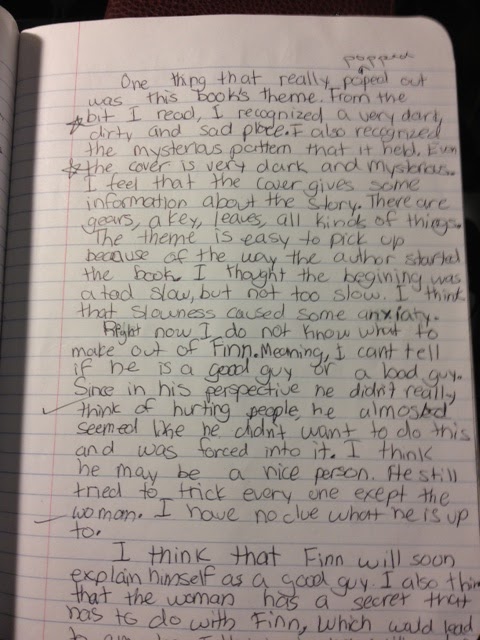 popped
One thing that really poped out
was this book's theme. From the
bit I read, I recognized a very dark,
dirty and sad place. I also recognized
the mysterious pattern that it held. Even
the cover is very dark and mysterious.
I feel that the cover gives some
information about the story. There are
gears, a key, leaves, all kinds of things.
The theme is easy to pick up
because of the way the author started
the book. I thought the begining was
a tad slow, but not too slow. I think
that slowness caused some anxiaty.
Right now I do not know what to
make out of Finn. Meaning, I cant tell
if he is a good guy or a bad guy.
Since in his perspective he didn't really
think of hurting people, he almosted
seemed like he didn't want to do this
and was forced into it. I think
he may be a nice person. He still
tried to trick every one exept the
woman. I have no clue what he is up
to.
I think that Finn will soon
explain himself as a good guy. I also thin
that the woman has a secret that
has to do with Finn, which would lead